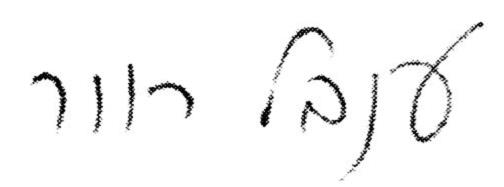 ענבל רוור